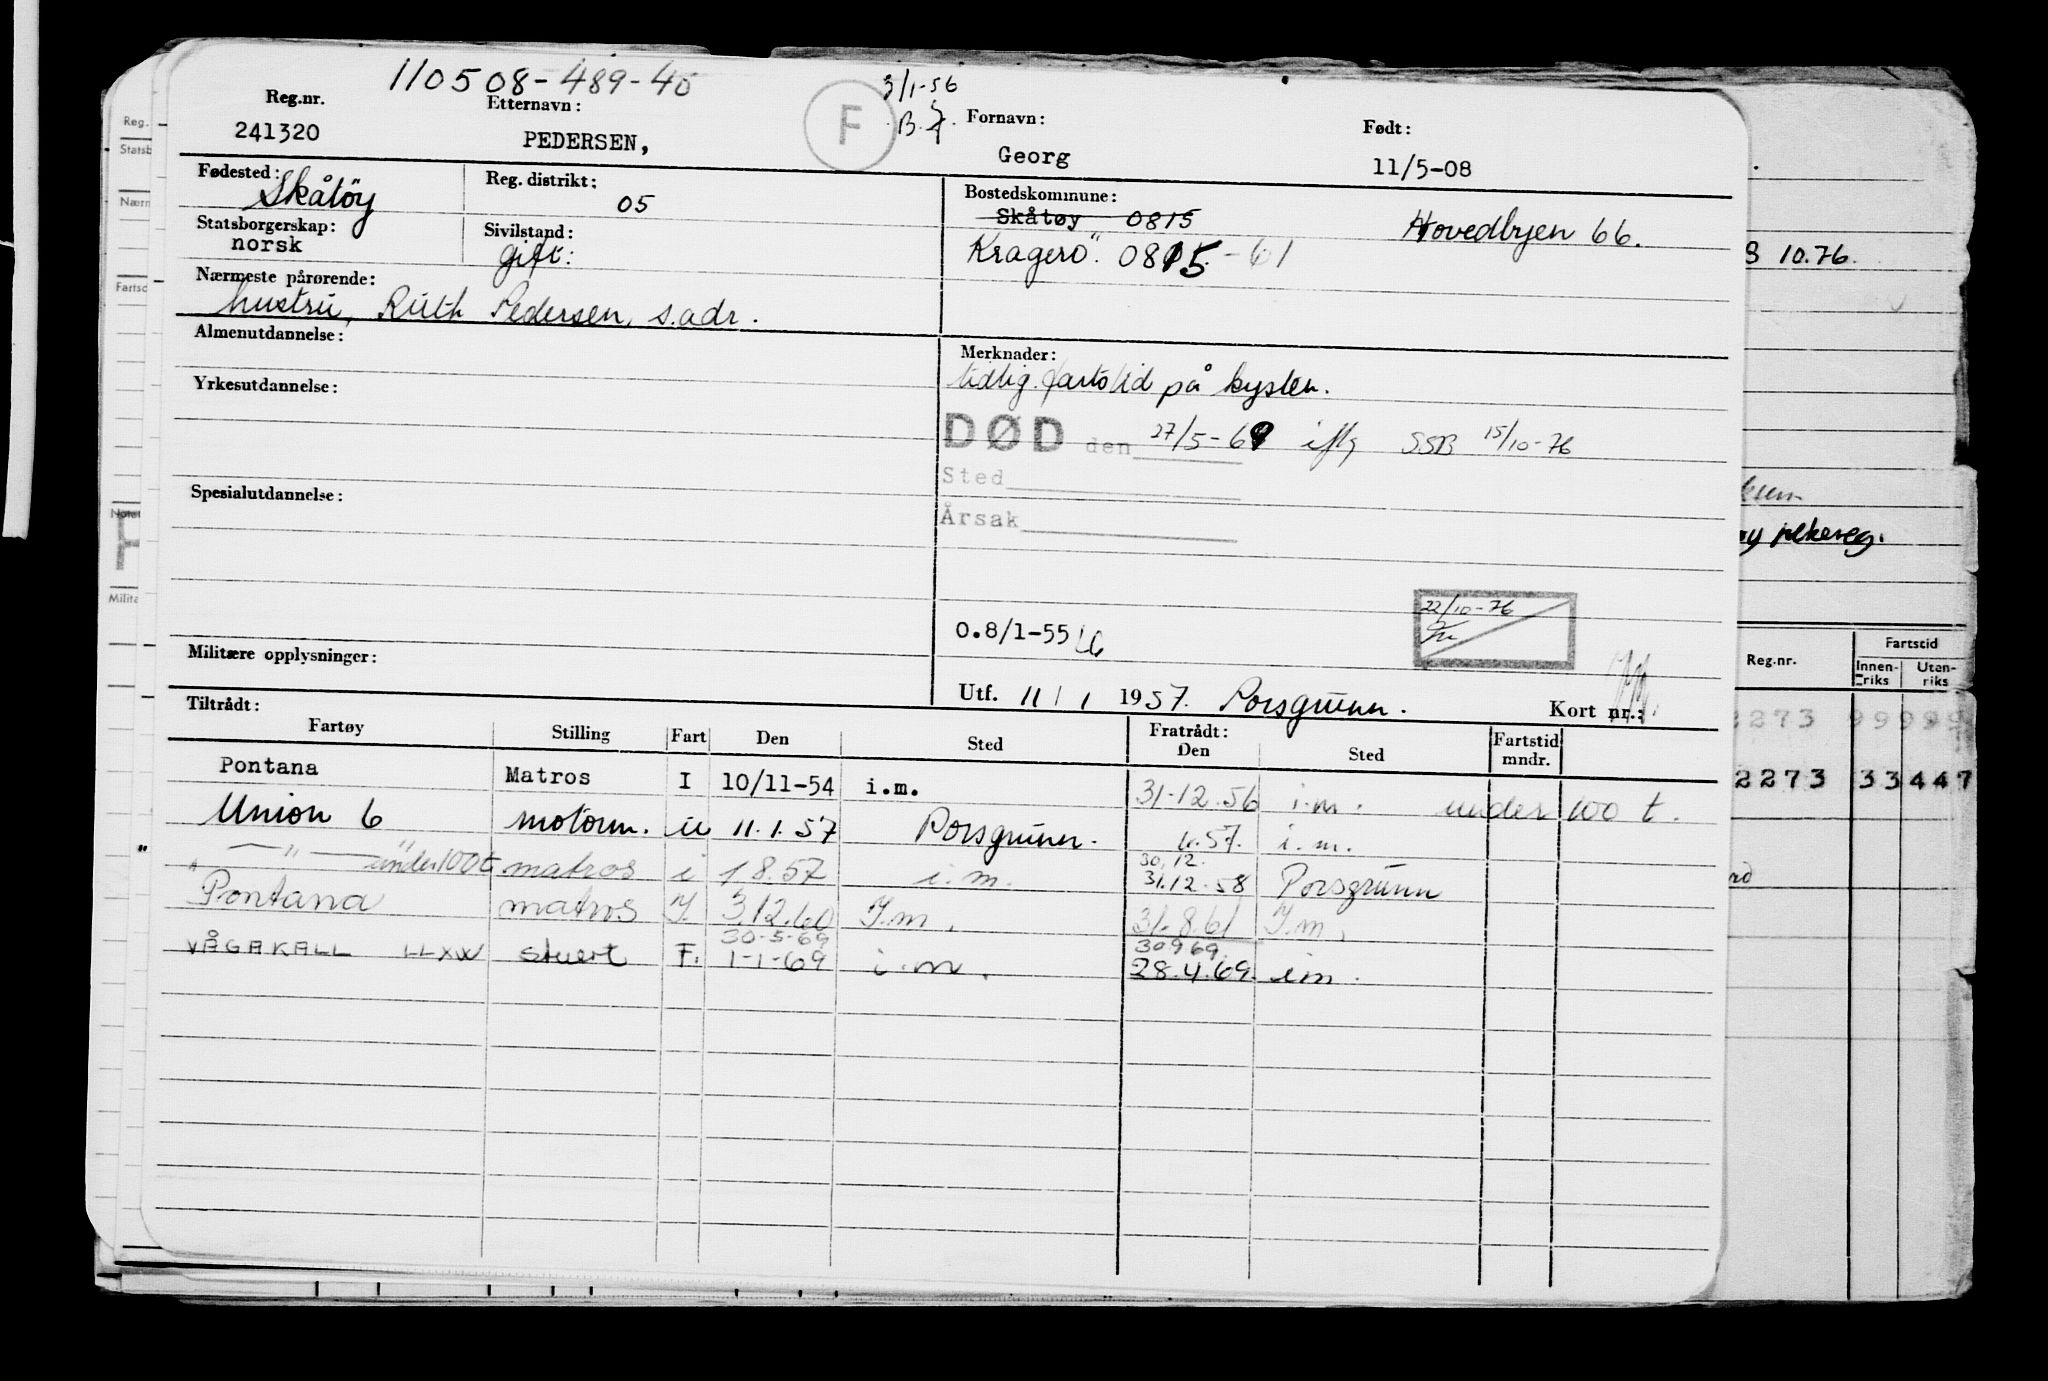 110508-489-40
3/1-56
Reg.nr. Etternavn: F B.J. Fornavn: Født:
241320 PEDERSEN, Georg 11/5-08
Fødested: Skåtöy Reg. distrikt: 05 Bostedskommune:
Skåtøy 0815 Hovedbyen 66.
Statsborgerskap: norsk Sivilstand: gift: Kragerö. 0815-61
Nærmeste pårørende:
hustru, Ruth Pedersen, s.adr.
Almenutdannelse: Merknader:
tidlig. fartstid på kysten.
Yrkesutdannelse:
DØD den 27/5-69 iflg SSB 15/10-76
Sted
Spesialutdannelse:
Årsak
22/10-76
0.8/1-55
Militære opplysninger:
Utf. 11/1 1957. Porsgrunn. Kort nr.:
Tiltrådt: Fratrådt:
Fartøy Stilling Fart Den Sted Den Sted Fartstid mndr.
Pontana Matros I 10/11-54 i.m. 31.12.56 i.m. under 100 t.
Union 6 motorm. iu 11.1.57 Porsgrunn. 4.57. i.m.
30.12.
—"— under 100t matros i 1 8.57 i.m. 31.12.58 Porsgrunn
" Pontana matros I. 3.12.60 I.m. 31.8.61 I.m.
30-5-69 30 9 69
VÅGAKALL LLXW stuert F. 1-1-69 i.m. 28.4.69. i.m.
Reg.
Statsb
Nærm
Fartsc
Notat
Milita
3 10.76.
pekereg.
Reg.nr. Fartstid
Innenriks Utenriks
2273 99999
2273 33447